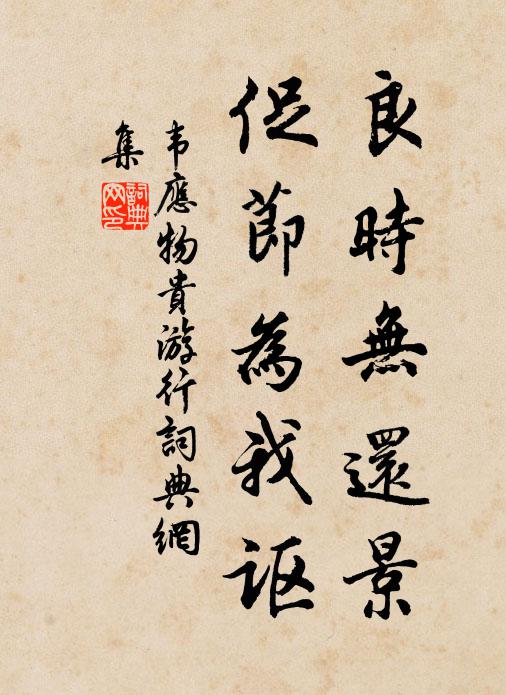 良時無還景
促節為我讴
韦應物貴游行詞典網
集
詞典網印